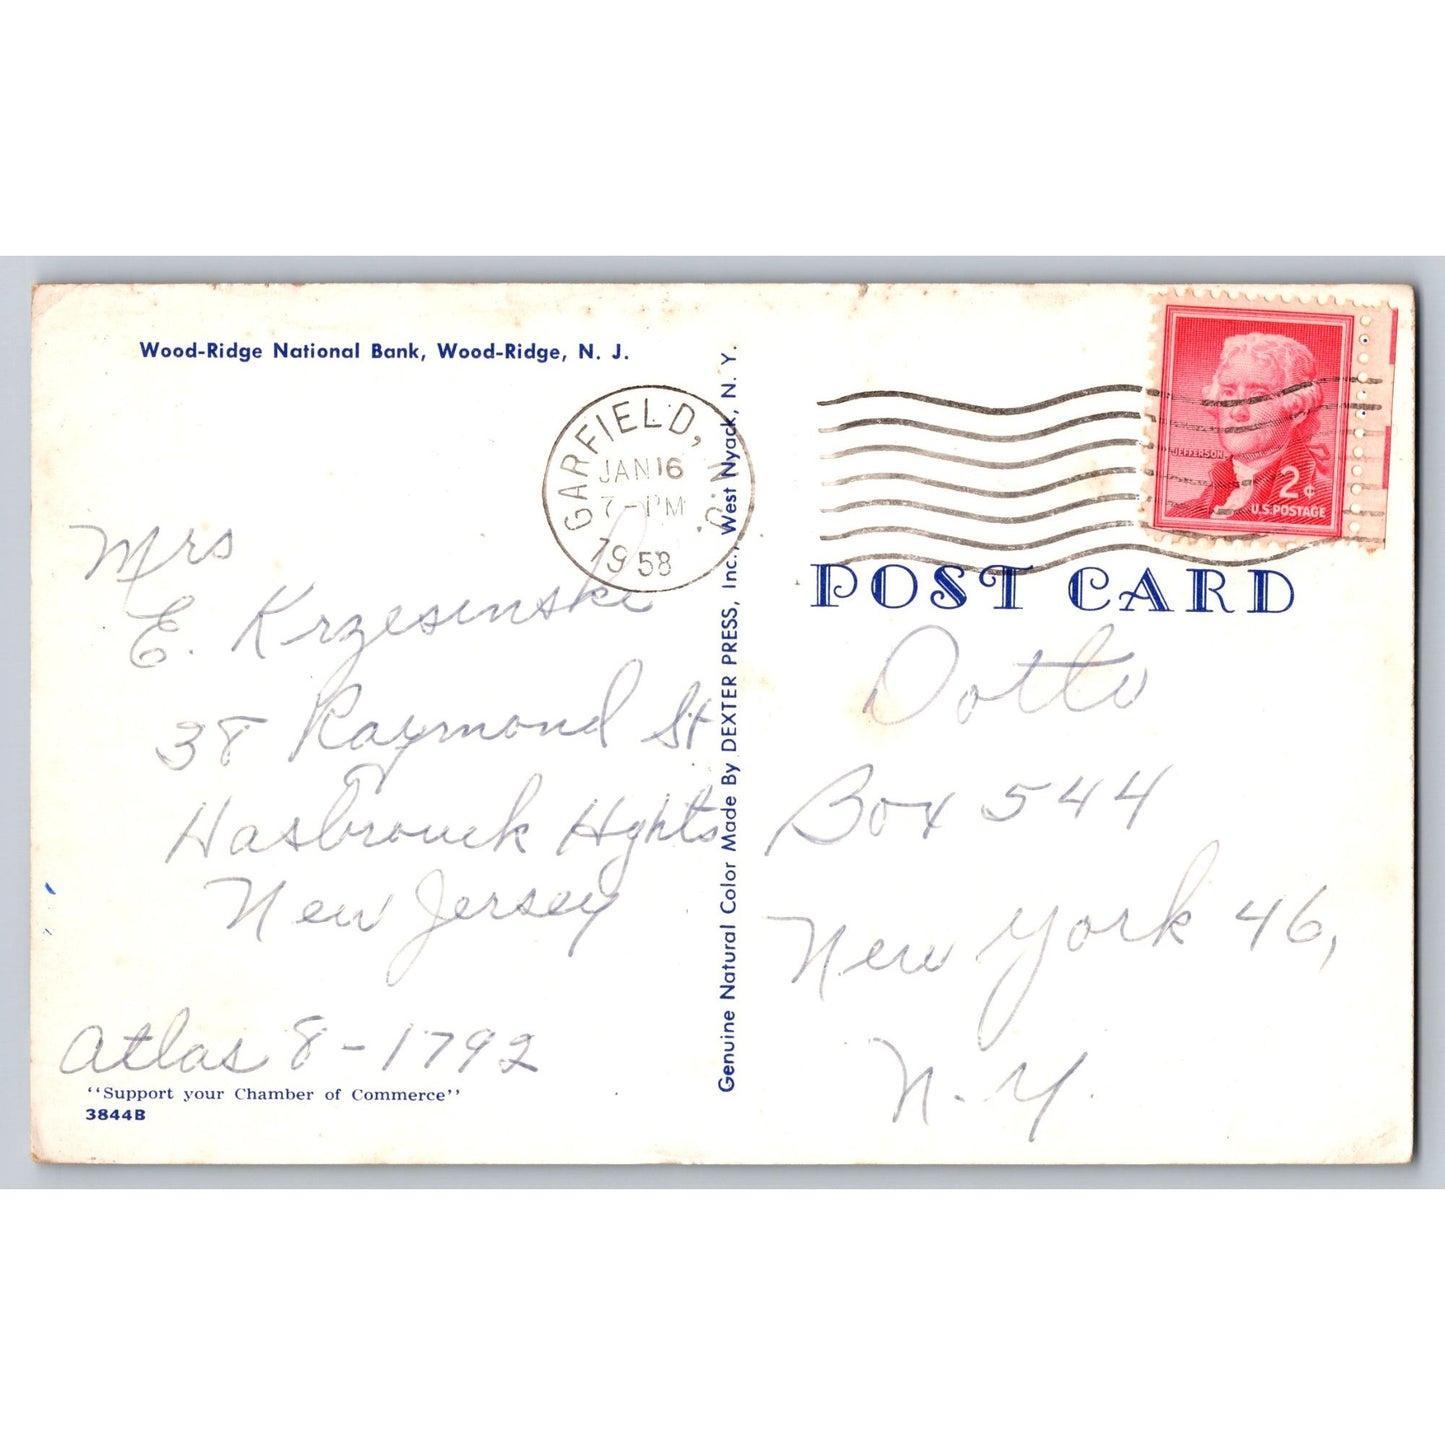 Wood-Ridge National Bank, Wood-Ridge, N. J.
GARFIELD, N.J.
JAN 16
7-PM
1958
Mrs
E. Krzesinski
38 Raymond St
Hasbrouck Hghts
New Jersey
Atlas 8-1792
"Support your Chamber of Commerce"
3844B
Genuine Natural Color Made By DEXTER PRESS, Inc., West Nyack, N. Y.
JEFFERSON
2¢
U.S. POSTAGE
POST CARD
Dotto
Box 544
New York 46,
N.Y.